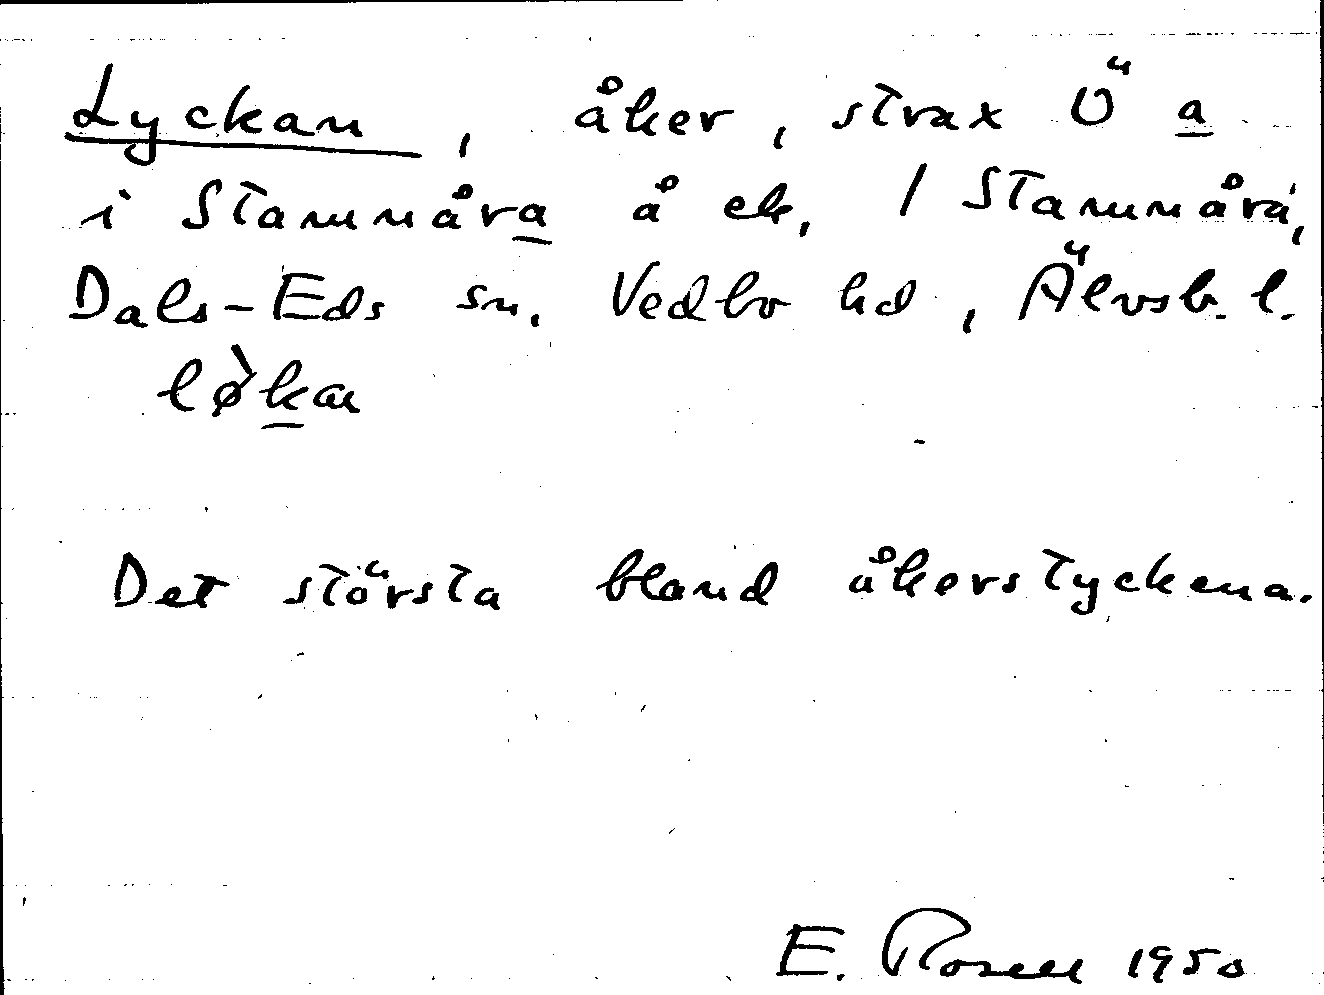 Lyckan, åker, strax Ö a
i Stammåra å ek, 1 Stammårá,
Dals-Eds sn. Vedbo hd, Älvsb. l.
lø̀kan
Det största bland åkerstyckena.
E. Rosell 1950